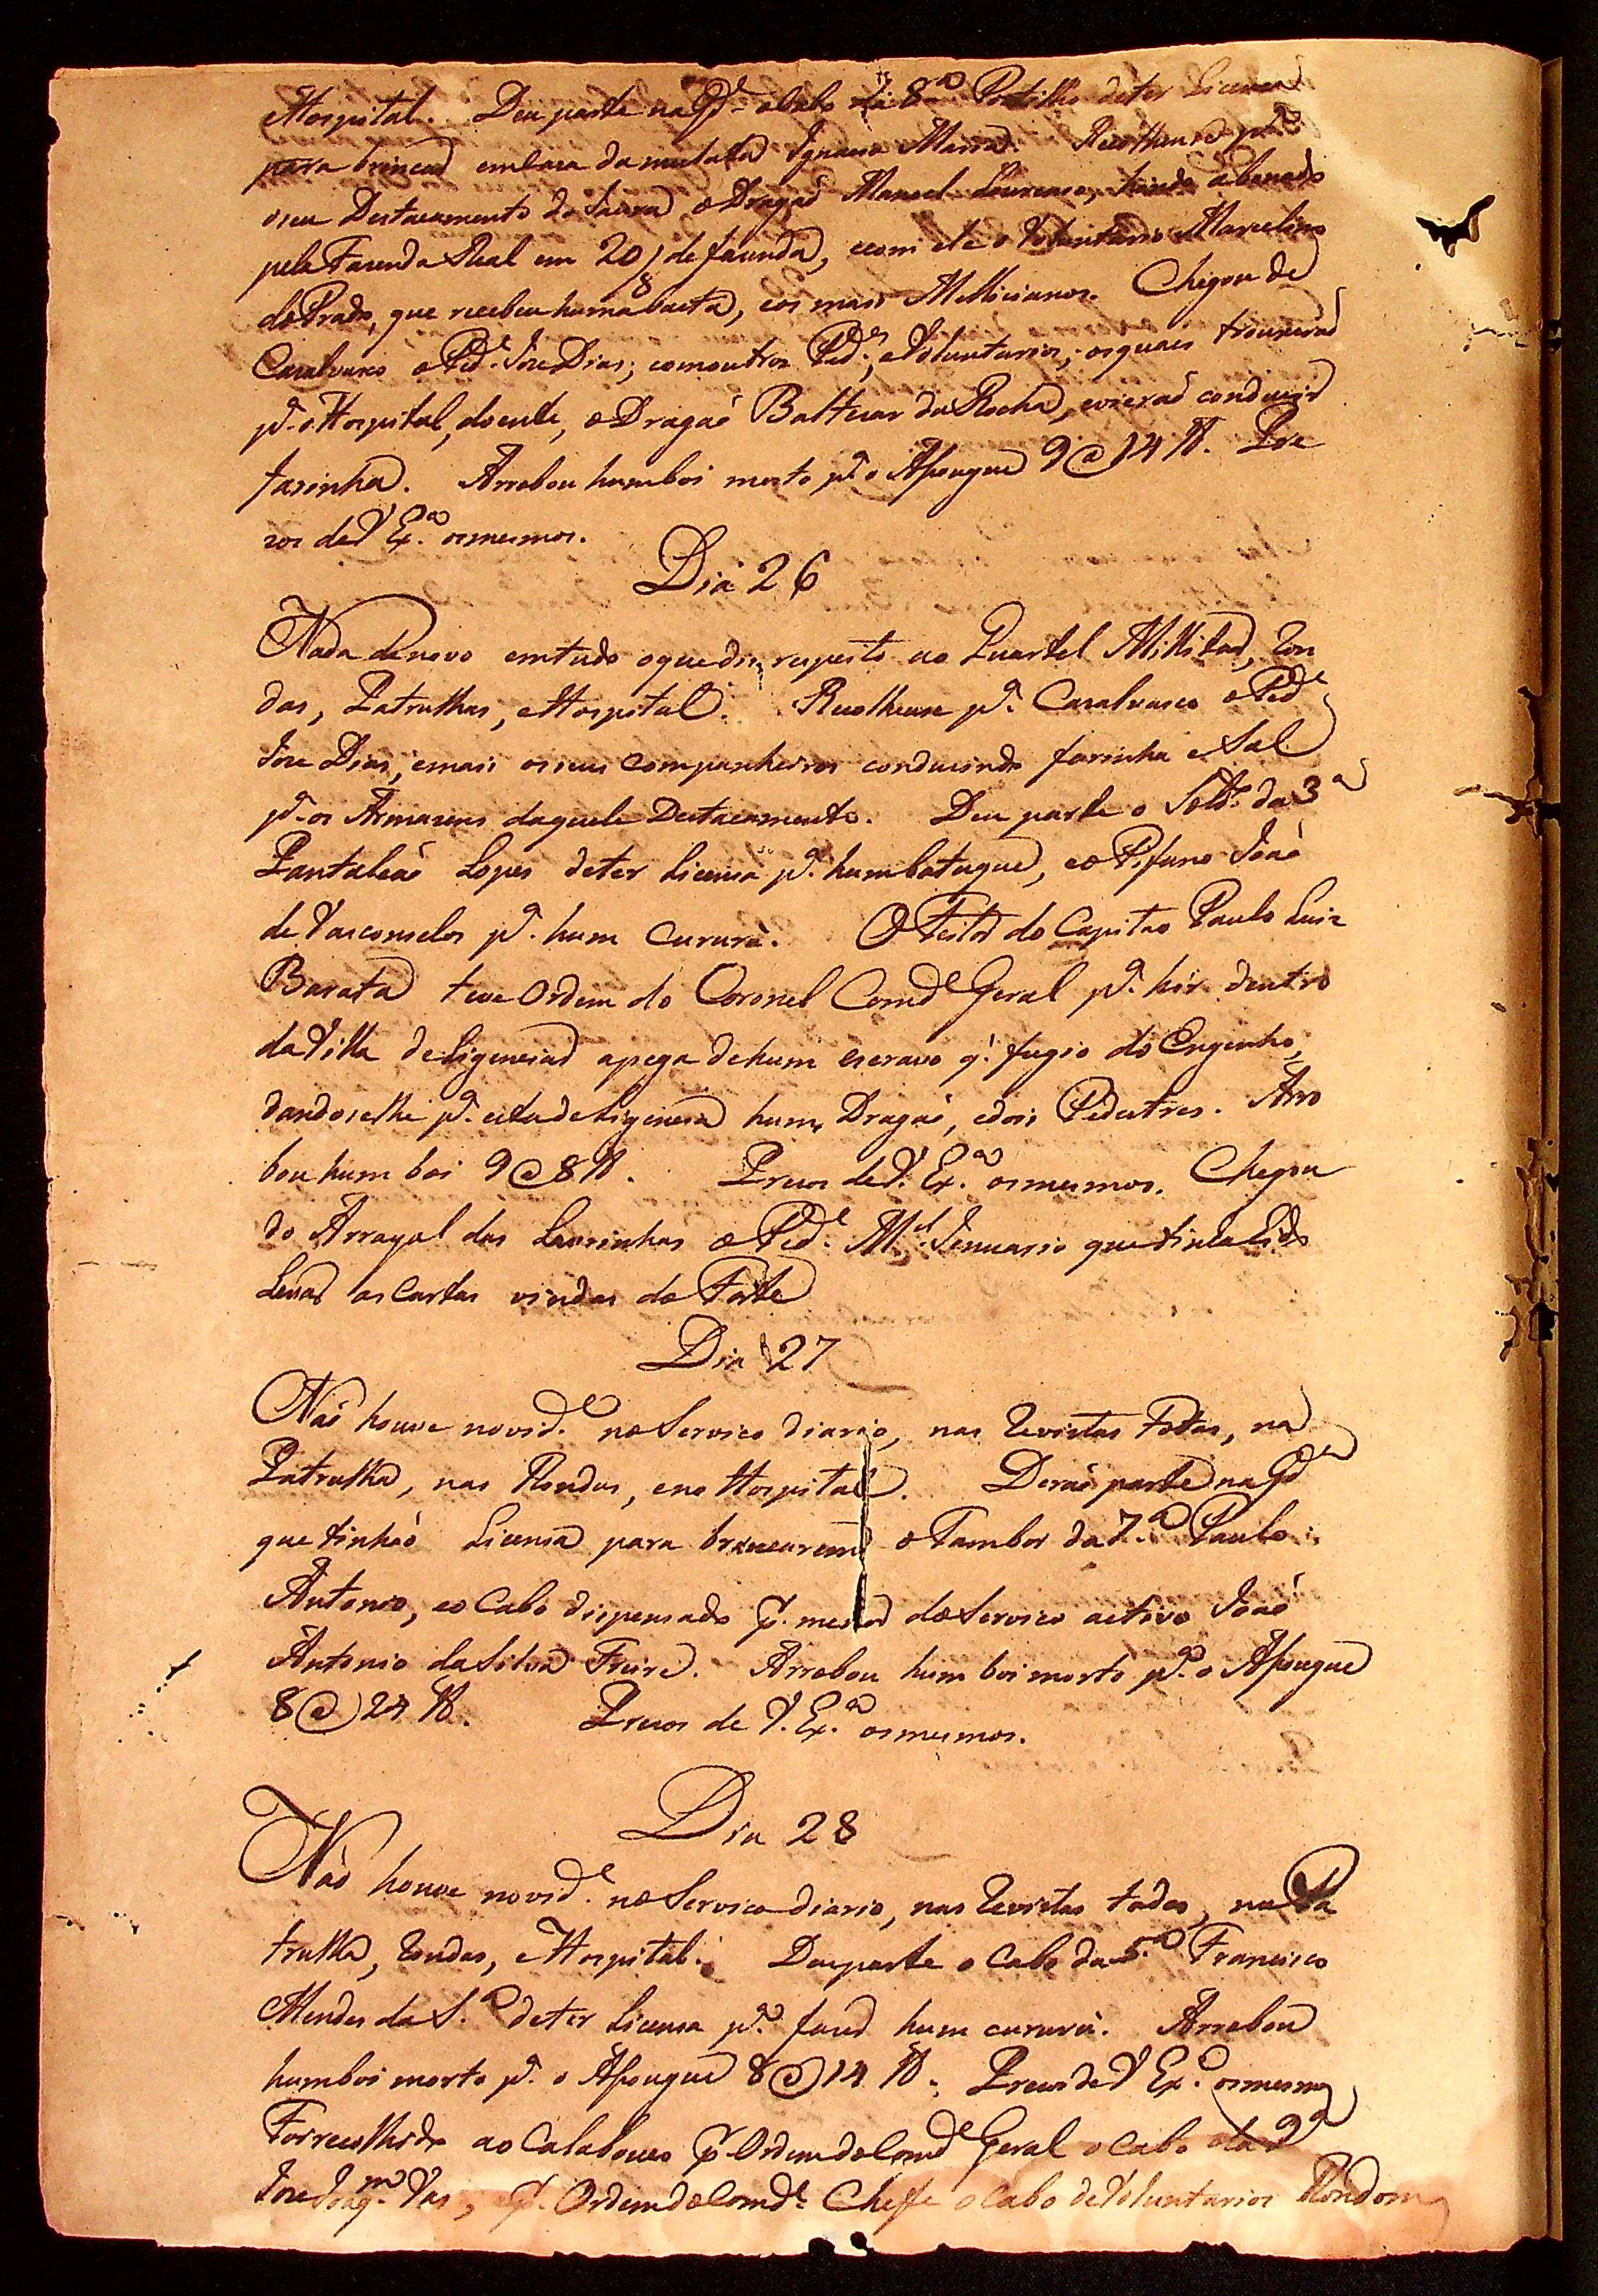 Hospital. Deu parte na Gd.ª o Cabo da 8.ª Portilho deter Licensa
para brincar em Caza da mulata Ignacia Maria. Recolheuse p.ª
o seu Destacamento do Jaurú o Dragaõ Manoel Lourenso, hindo abonado
pela Fazenda Real em 20/8 de fazenda, e com ele o Voluntario Marcelino
do Prado, que recebeu huma baeta, e os mais Millicianos. Chegou de
Cazalvasco o Ped.e Joze Dias; com outros Ped.es, e Voluntarios, os quais trouxeraõ
p.ª o Hospital, doente, o Dragaõ Baltezar da Rocha, e vieraõ conduzir
farinha. Arrobou hum boi morto p.ª o Asougue 9@14 lb. Pre
zos de V Ex.ª os mesmos.
Dia 26
Nada de novo em tudo o que diz respeito ao Quartel Millitar, Ron
das, Patrulhas, e Hospital. Recolheuse p.ª Cazalvasco o Ped.e
Joze Dias, e mais os seus Companheiros conduzindo farinha e Sal
p.ª os Armazens daquele Destacamento. Deu parte o Sold.º da 3.ª
Pantaleaõ Lopes deter Licensa p.ª hum batuque, e o Pifano Joaõ
de Vasconselos p.ª hum Cururú. O Feitor do Capitao Paulo Luiz
Barata teve Ordem do Coronel Comd.e Geral p.ª hir dentro
da Villa deligenciar a pega de hum escravo q.' fugio do Engenho,
dandoselhe p.ª esta deligencia hum Dragaõ, e dois Pedestres. Arro
bou hum boi 9@8 lb. Prezos de V. Ex.ª os mesmos. Chegou
do Arrayal das Lavrinhas o Ped.e M.el Jenuario que tinha hido
Levar as Cartas vindas do Forte
Dia 27
Naõ houve novid.e no Servico diario, nas Revistas todas, na
Patrulha, nas Rondas, e no Hospital. Deraõ parte na Gd.ª
que tinhaõ Licensa para brincarem o Tambor da 7.ª Paulo
Antonio, e o Cabo dispensado p. menor do Servico activo Joaõ
Antonio da Silva Freire. Arrobou hum boi morto p.ª o Asougue
8@24 lb. Prezos de V. Ex.ª os mesmos.
Dia 28
Naõ houve novid.e no Servico diario, nas Revistas todas, na Pa
trulha, Rondas, e Hospital. Deu parte o Cabo da 5.ª Francisco
Mendes da S.ª deter Licensa p.ª fazer hum cururú. Arrobou
hum boi morto p.ª o Asougue 8@14 lb. Prezos de V Ex.ª os mesmos
Foi recolhido ao Calabouco p. Ordem do Comd.e Geral o Cabo da 2.ª
Joze Joaq.m Vas, e p. Ordem do Comd.e Cheffe o Cabo de Voluntarios Rondom